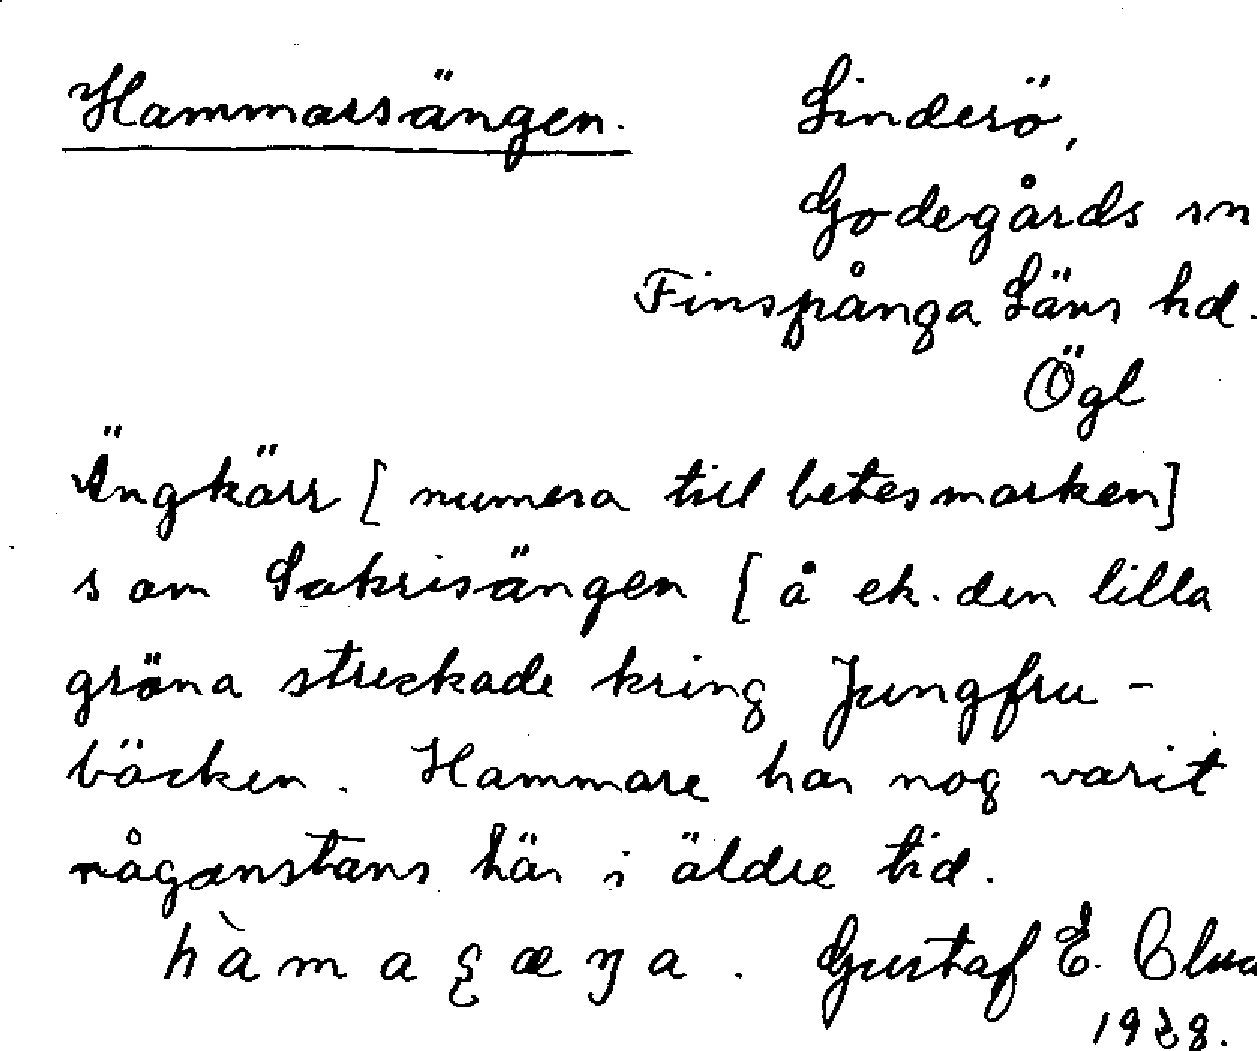 Hammarsängen. Linderö,
Godegårds sn
Finspånga Läns hd.
Ögl
Ängkärr [numera till betesmarken]
som Sakrisängen [å ek. den lilla
gröna streckade kring Jungfru-
bäcken. Hammare har nog varit
någonstans här i äldre tid.
hàmaʂæŋa. Gustaf E.
1928.